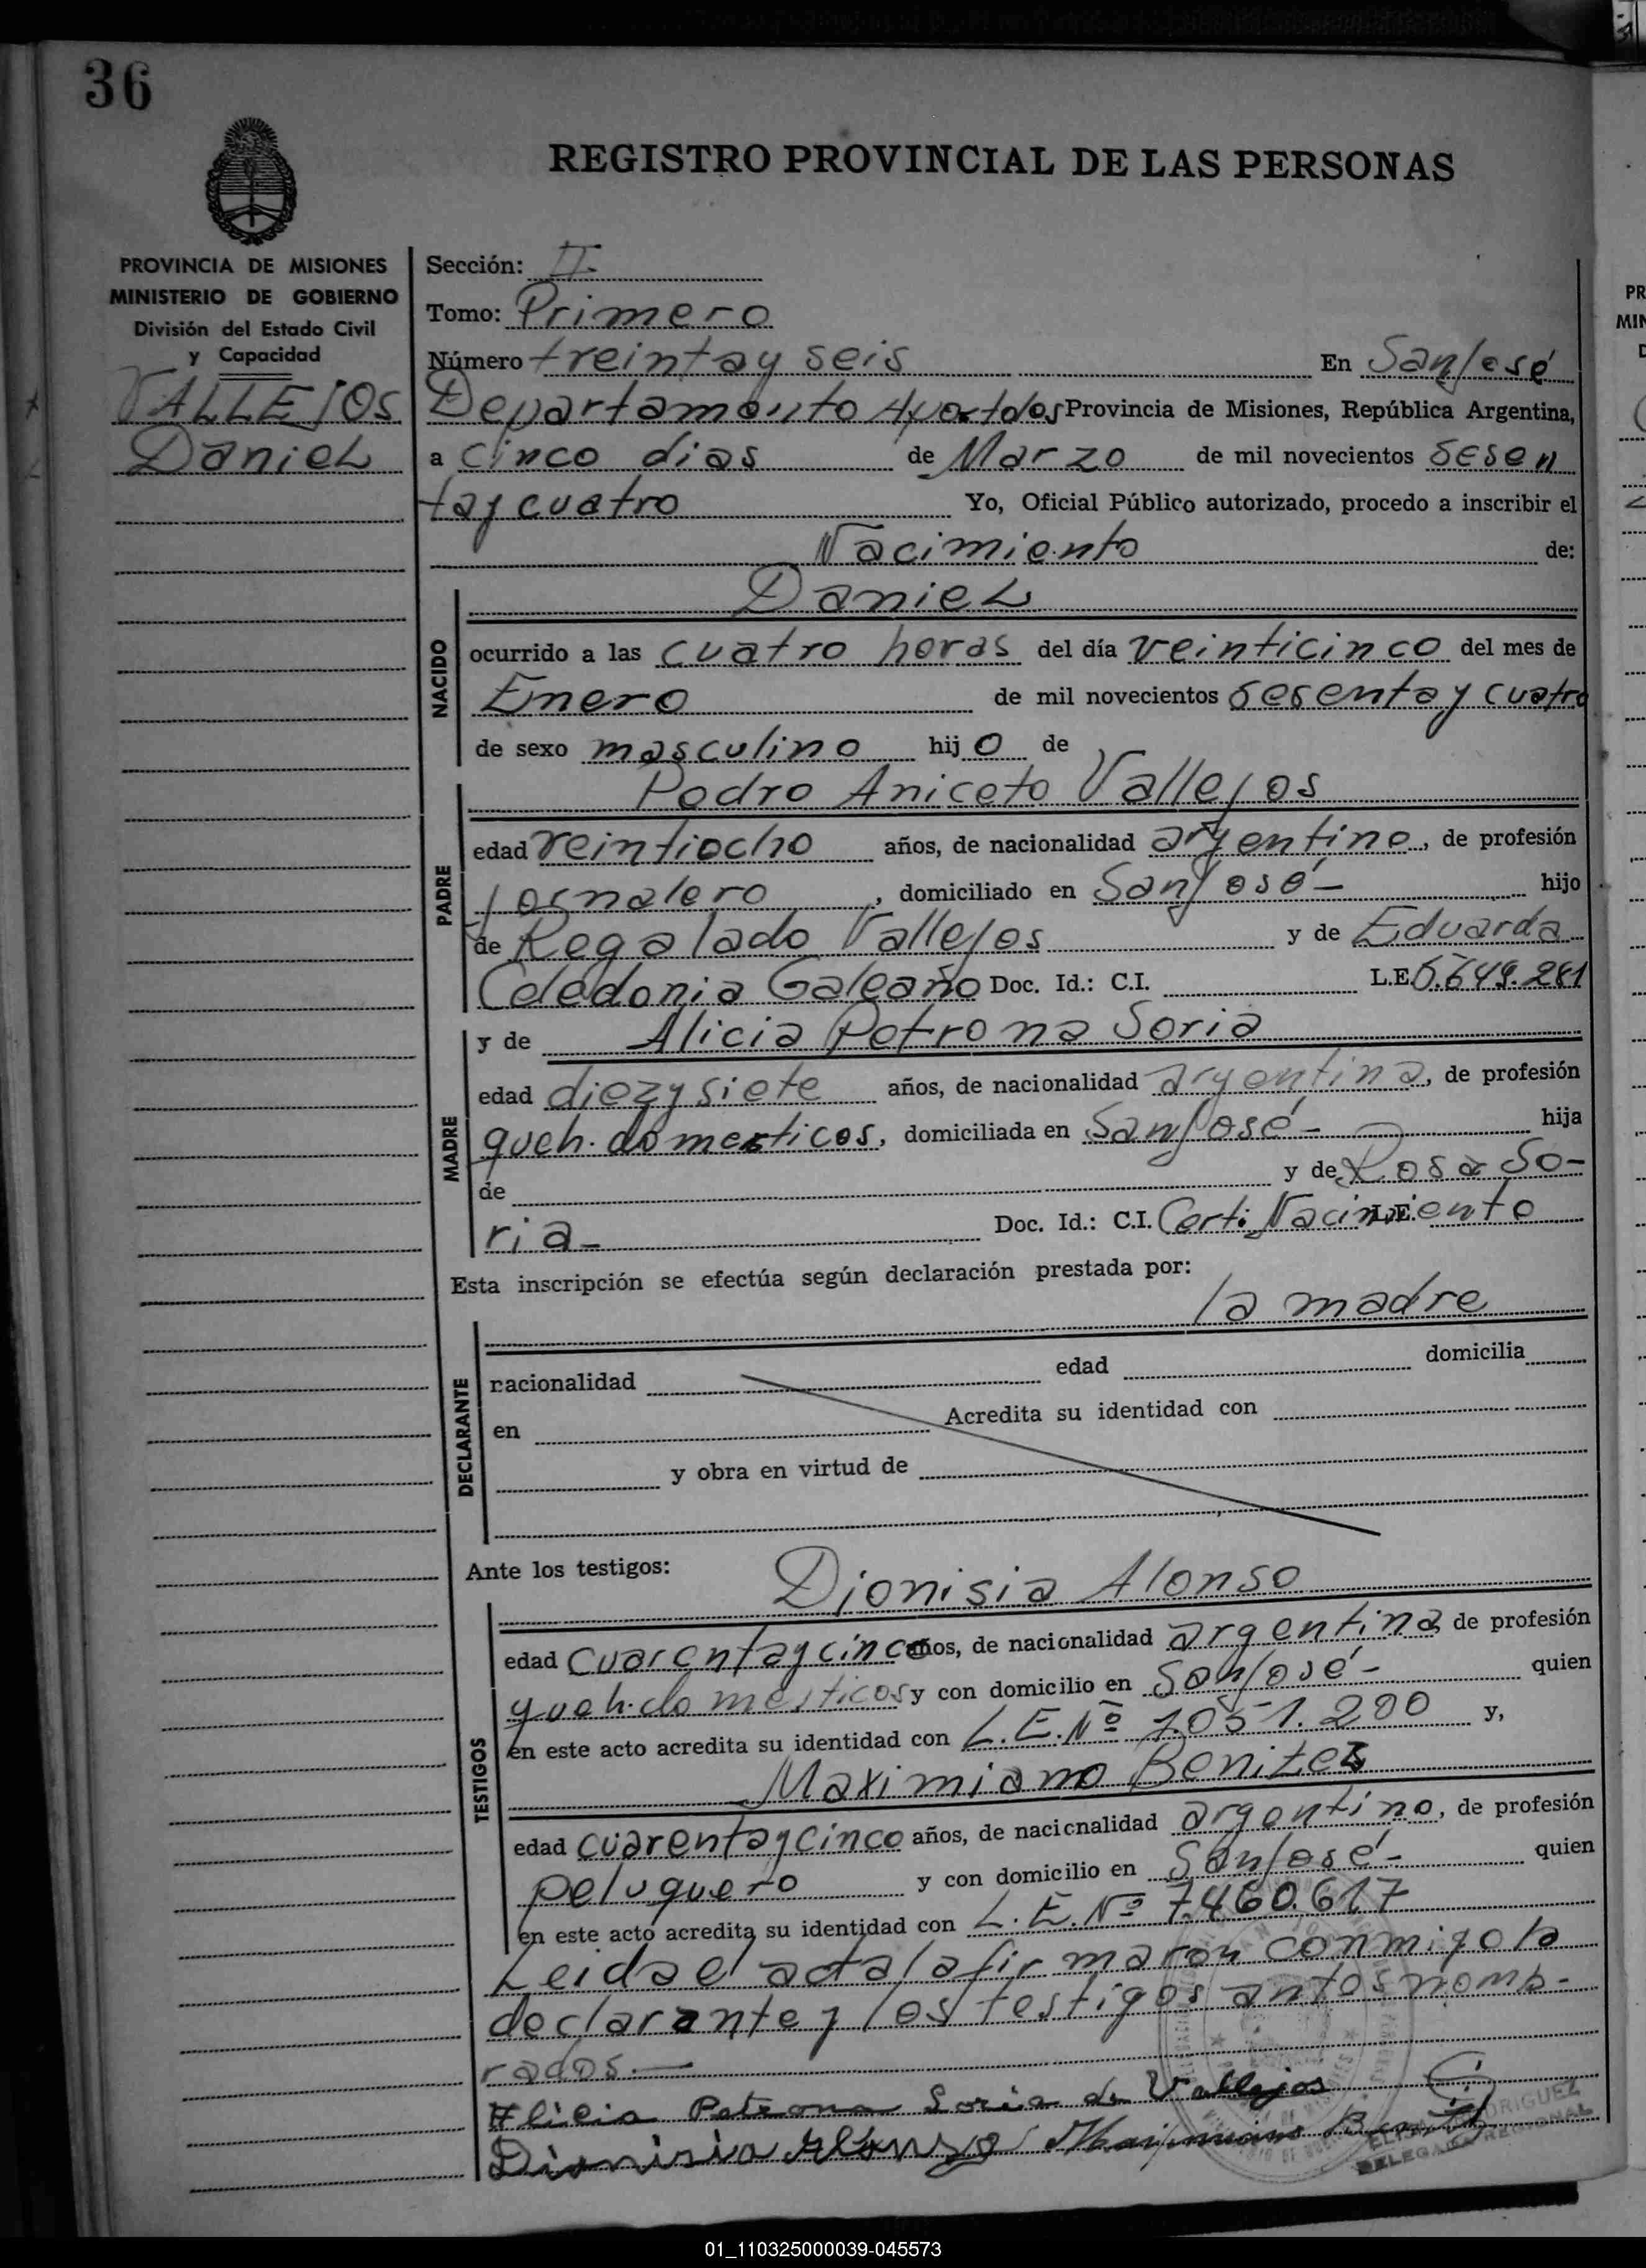 36
REGISTRO PROVINCIAL DE LAS PERSONAS
PROVINCIA DE MISIONES
MINISTERIO DE GOBIERNO
División del Estado Civil
y Capacidad
VALLEJOS
Daniel
Sección: II
Tomo: Primero
Número treinta y seis En San José
Departamento Apostoles Provincia de Misiones, República Argentina,
a cinco dias de Marzo de mil novecientos sesen
ta y cuatro Yo, Oficial Público autorizado, procedo a inscribir el
Nacimiento de:
NACIDO
Daniel
ocurrido a las cuatro horas del día veinticinco del mes de
Enero de mil novecientos sesenta y cuatro
de sexo masculino hijo de
PADRE
Pedro Aniceto Vallejos
edad veintiocho años, de nacionalidad argentino, de profesión
jornalero, domiciliado en San José - hijo
de Regalado Vallejos y de Eduarda
Celedonia Galeano Doc. Id.: C.I. L.E. 5.649.281
MADRE
y de Alicia Petrona Soria
edad diez y siete años, de nacionalidad argentina, de profesión
queh. domesticos, domiciliada en San José - hija
de y de Rosa So-
ria - Doc. Id.: C.I. Cert. Nacimiento L.E.
Esta inscripción se efectúa según declaración prestada por:
la madre
DECLARANTE
nacionalidad edad domicilia
en Acredita su identidad con
y obra en virtud de
Ante los testigos:
TESTIGOS
Dionisia Alonso
edad cuarenta y cinco años, de nacionalidad argentina de profesión
queh. domesticos y con domicilio en San José - quien
en este acto acredita su identidad con L.E. Nº 1.051.200 y,
Maximiano Benitez
edad cuarenta y cinco años, de nacionalidad argentino, de profesión
peluquero y con domicilio en San José - quien
en este acto acredita su identidad con L.E. Nº 7.460.617
Leida el acta la firmaron conmigo la
declarante y los testigos antes nomb-
rados.—
Alicia Petrona Soria de Vallejos
Dionisia Alonso Maximiano Benitez
RODRIGUEZ
DELEGADA REGIONAL
01_110325000039-045573